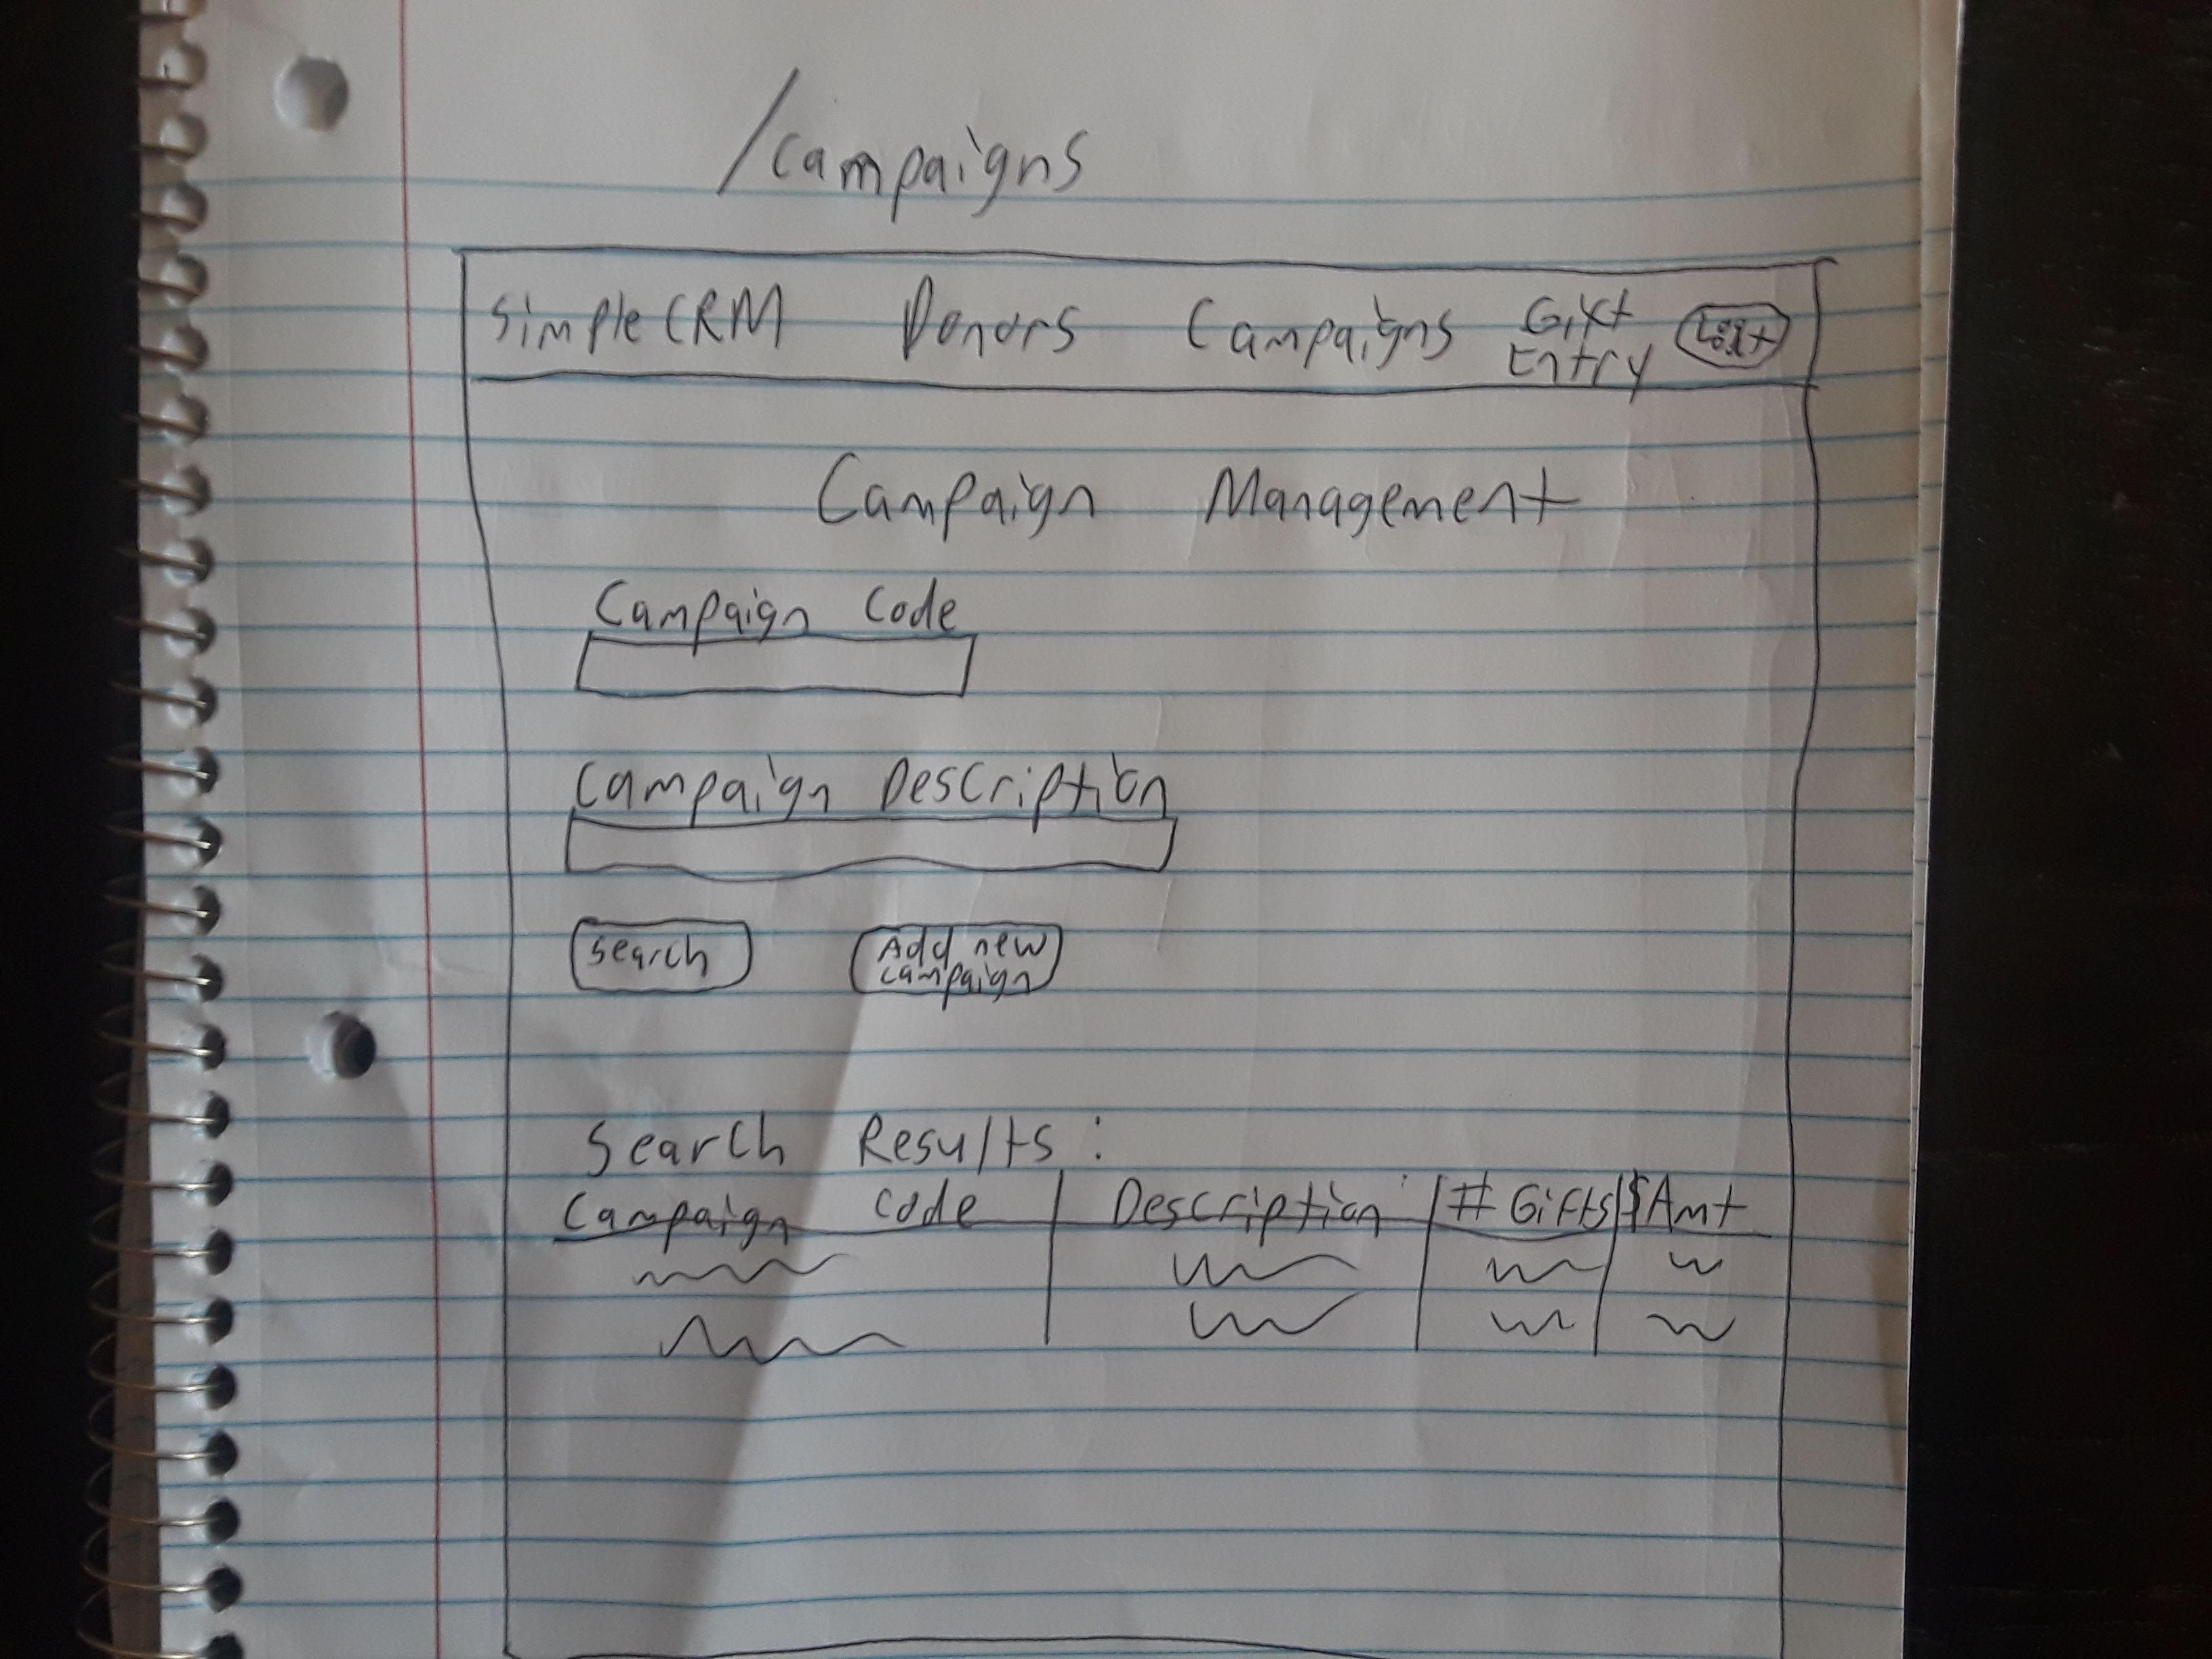 /campaigns
SimpleCRM Donors Campaigns Gift Entry
Campaign Management
Campaign Code
Campaign Description
Search
Add new
campaign
Search Results:
Campaign Code | Description | # Gifts | $Amt